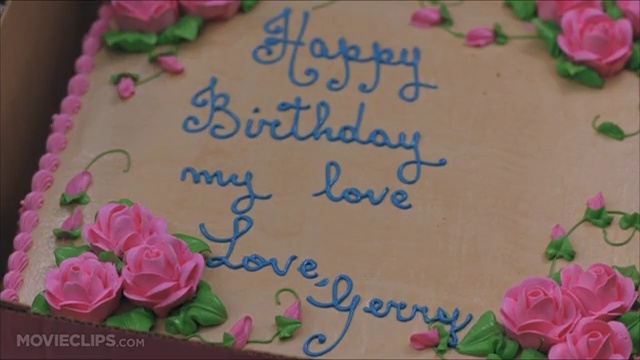 Happy
Birthday
my love
Love, Gerry
MOVIECLIPS.COM